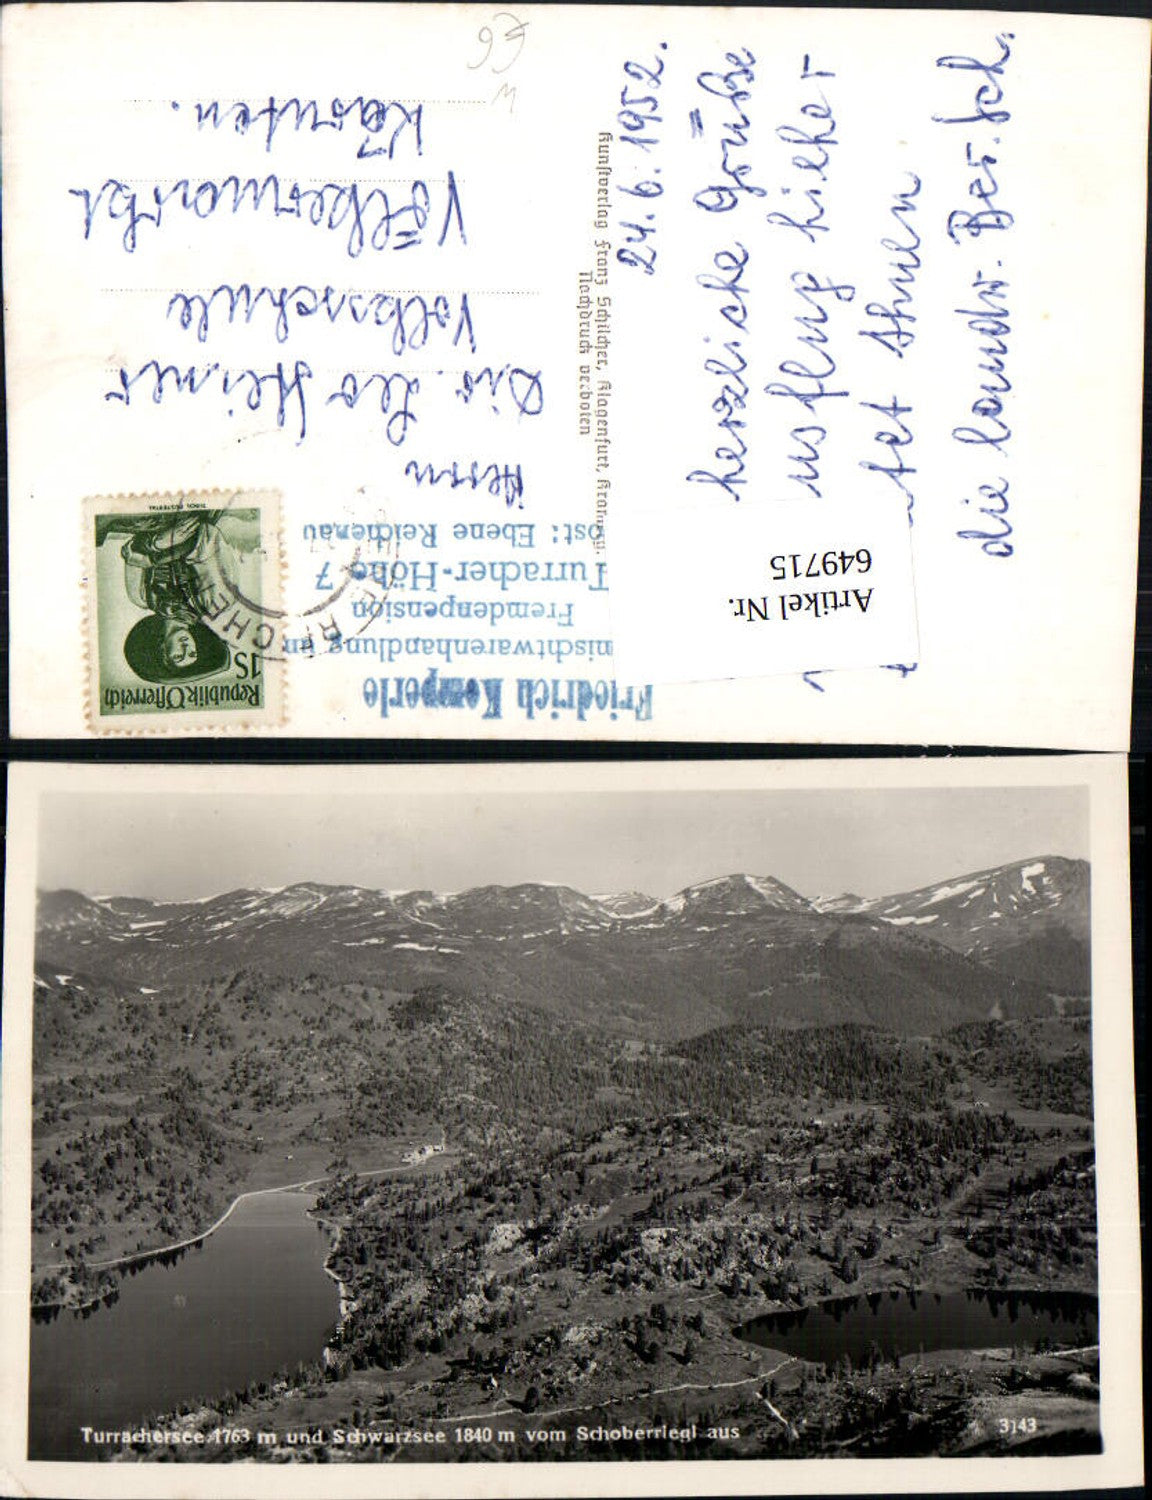 24.6.1952.
herzliche Grüße
usflug hieher
tet Ihnen
die landw. Ber. Sch.
Kunstverlag Franz Schilcher, Klagenfurt,
Nachdruck verboten
Artikel Nr.
649715
Republik Österreich
1S
Friedrich Kemperle
mischtwarenhandlung un
Fremdenpension
Turracher-Höhe 7
ost: Ebene Reichenau
Herrn
Dir. Leo Steiner
Volksschule
Völkermarkt
Kärnten.
Turrachersee 1763 m und Schwarzsee 1840 m vom Schoberriegl aus
3143